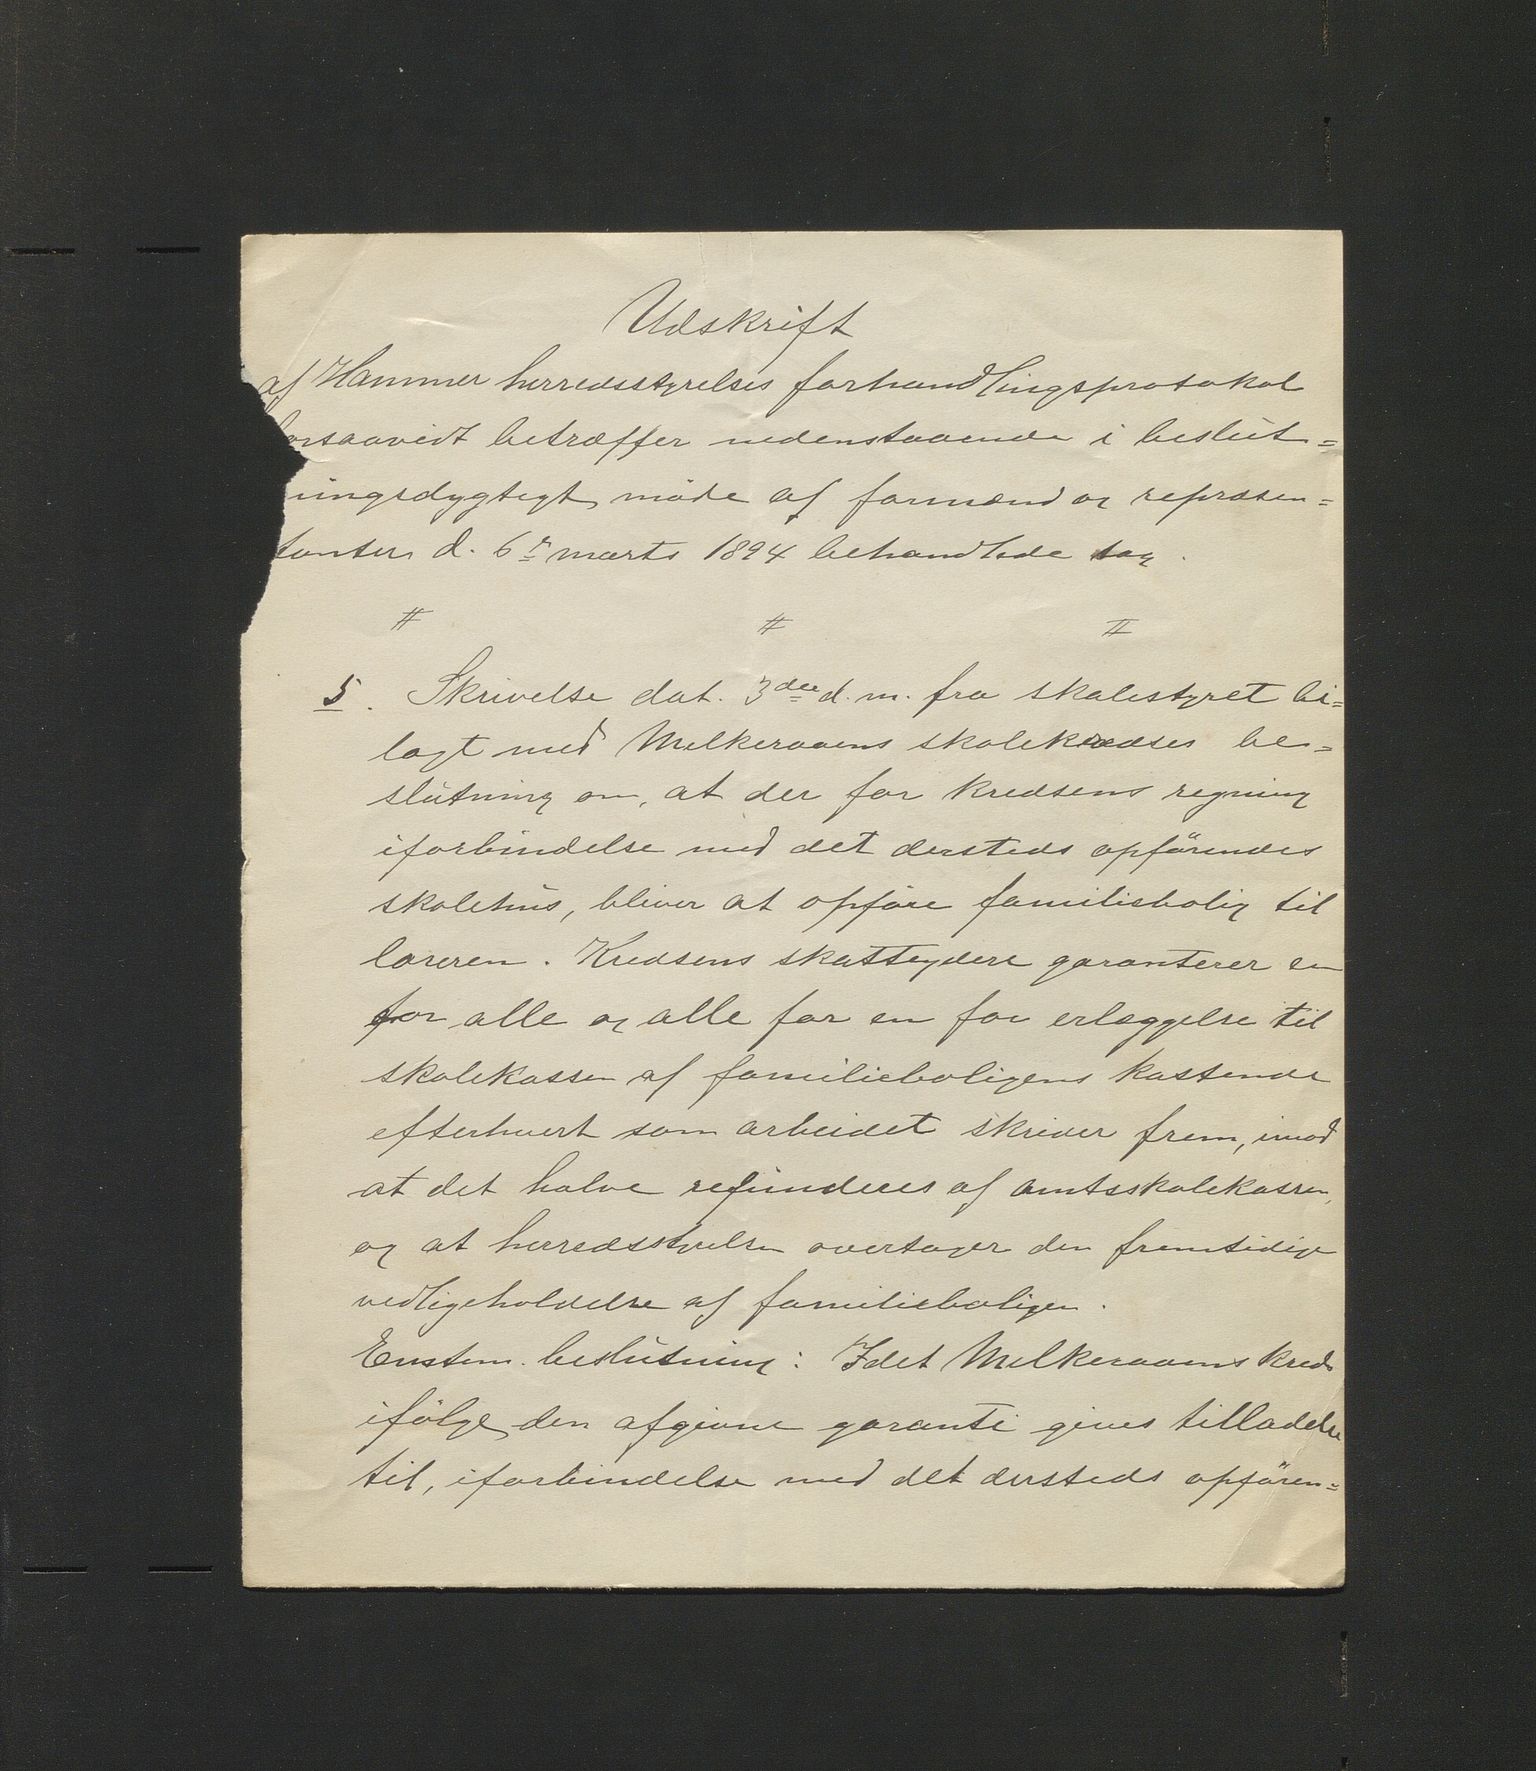 Udskrift
af Hammer herredsstyrelses forhandlingsprotokol
forsaavidt betræffer nedenstaaende i beslut=
ningsdygtigt møde af formænd og repræsen=
tanter d. 6te marts 1894 behandlede sag.
# # #
5. Skrivelse dat. 3die d. m. fra skolestyret bi=
lagt med Melkeraaens skolekredses be=
slutning om, at der for kredsens regning
iforbindelse med det dersteds opførendes
skolehus, bliver at opføre familiebolig til
læreren. Kredsens skatteydere garanterer en
for alle og alle for en for erlæggelse til
skolekassen af familieboligens kostende
efterhvert som arbeidet skrider frem, imod
at det halve refunderes af amtsskolekassen,
og at herredsstyrelsen overtager den fremtidige
vedligeholdelse af familieboligen.
Enstem. beslutning: Idet Melkeraaens kreds
ifølge den afgivne garanti gives tilladelse
til, iforbindelse med det dersteds opføren=